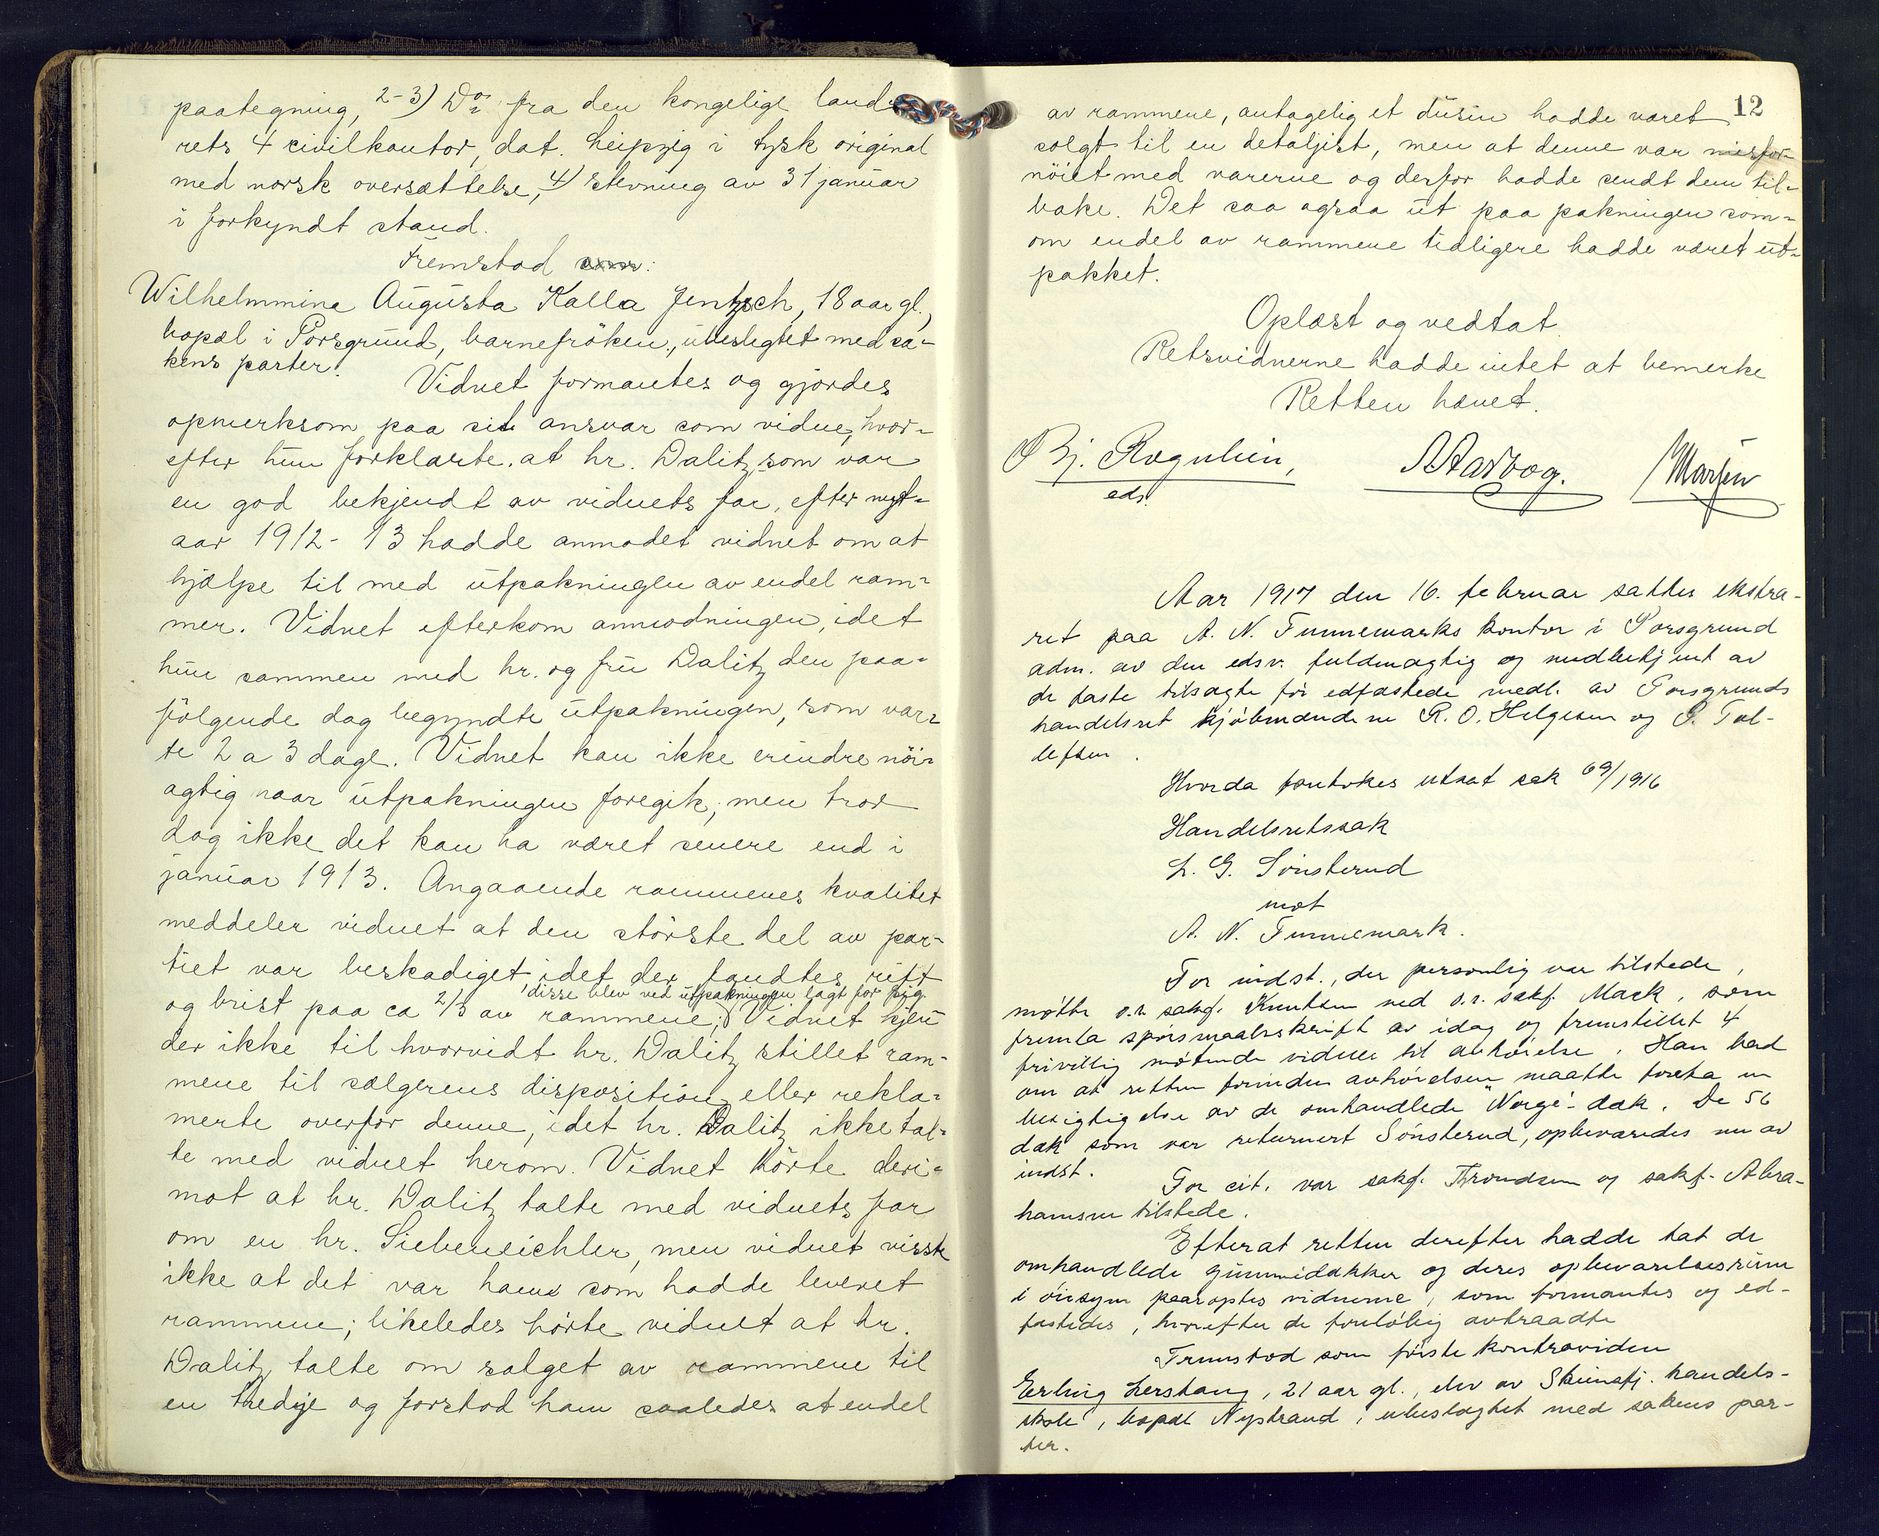 paategning, 2-3) Do fra den kongelige lands-
rets 4 civilkantor, dat. Leipzig i tysk original
med norsk oversættelse, 4) Stevning av 31 januar
i forkyndt stand.
Fremstod
Wilhelmmine Augusta Kalla Jentzsch, 18 aar gl.,
bopæl i Porsgrund, barnefröken, ubeslegtet med sa-
kens parter.
Vidnet formantes og gjordes
opmerksom paa sit ansvar som vidne, hvor-
efter hun forklarte. at hr. Dalitz som var
en god bekjendt av vidnets far, efter nyt-
aar 1912-13 hadde anmodet vidnet om at
hjælpe til med utpakningen av endel ram-
mer. Vidnet efterkom anmodningen, idet
hun sammen med hr. og fru Dalitz den paa-
følgende dag begyndte utpakningen, som var-
te 2 a 3 dage. Vidnet kan ikke erindre nöi-
agtig naar utpakningen foregik, men tror
dog ikke det kan ha været senere end i
januar 1913. Angaaende rammenes kvalitet
meddeler vidnet at den störste del av par-
tiet var beskadiget, idet der fandtes rift
, disse blev ved utpakningen lagt for sig.
og brist paa ca 2/3 av rammene; Vidnet kjen
der ikke til hvorvidt hr. Dalitz stillet ram-
mene til sælgerens disposition eller rekla-
merte overfor denne, idet hr. Dalitz ikke tal-
te med vidnet herom. Vidnet hörte deri-
mot at hr. Dalitz talte med vidnets far
om en hr. Siebeneichler, men vidnet visste
ikke at det var ham som hadde leveret
rammene; likeledes hörte vidnet at hr.
Dalitz talte om salget av rammene til
en tredje og forstod ham saaledes at endel
12
av rammene, antagelig et dusin hadde været
solgt til en detaljist, men at denne var misfor-
nöiet med varerne og derfor hadde sendt dem til-
bake. Det saa ogsaa ut paa pakningen som-
om endel av rammene tidligere hadde været ut-
pakket.
Oplæst og vedtat.
Retsvidnerne hadde intet at bemerke
Retten hævet.
Bj. Rognlien, AAarvog.
eds.
Aar 1917 den 16. februar sattes ekstra-
ret paa A. N. Tunnemarks kontor i Porsgrund
adm. av den edsv. fuldmægtig og medbetjent av
de faste tilsagte før edfæstede medl. av Porsgrunds
handelsret kjøbmændene R. O. Helgesen og P. Tol-
lefsen.
Hvorda foretokes utsat sak 69/1916
Handelsretssak
L. G. Sönsterud
mot
A. N. Tunnemark.
For indst., der personlig var tilstede,
møtte o.r. sakf. Knutsen ved o.r. sakf. Mack, som
fremla spörsmaalsskrift av idag og fremstillet 4
frivillig møtende vidner til avhørelse. Han bad
om at retten forinden avhörelsen maatte foreta en
besigtigelse av de omhandlede "Norge"-dæk. De 56
dæk som var returnert Sönsterud, opbevaredes nu av
indst.
For cit. var sakf. Trondsen og sakf. Abra-
hamsen tilstede.
Efterat retten derefter hadde tat de
omhandlede gummidækker og deres opbevarelsesrum
i öiesyn paaroptes vidnerne, som formantes og ed-
fæstedes, hvorefter de foreløbig avtraadte
Fremstod som første kontraviden
Erling Lerstang, 21 aar gl., elev av Skiensfj. handels-
skole, bopæl Nystrand, ubeslægtet med sakens par-
ter.